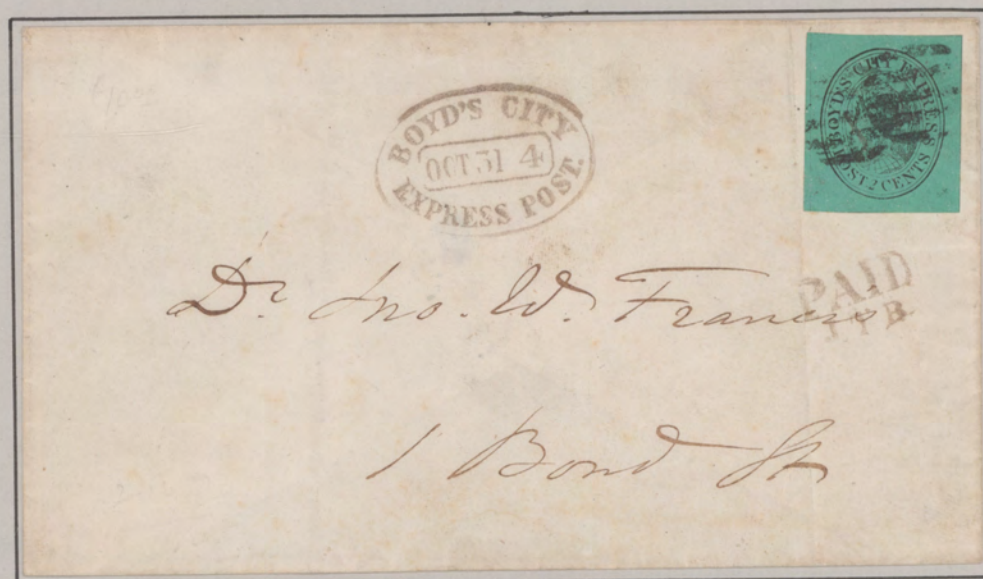 BOYD'S CITY
OCT 31 4
EXPRESS POST.
BOYD'S CITY EXPRESS
POST 2 CENTS
Dr. Jno. W. Francis
PAID
1 Bond St